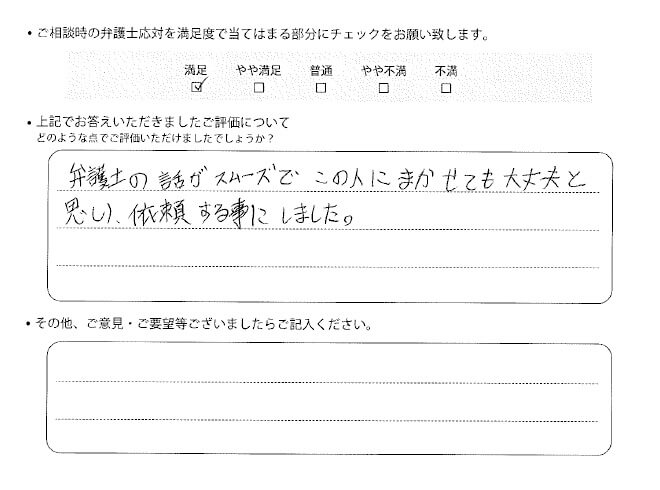 ・ご相談時の弁護士応対を満足度で当てはまる部分にチェックをお願い致します。
満足 やや満足 普通 やや不満 不満
☑ □ □ □ □
・上記でお答えいただきましたご評価について
どのような点でご評価いただけましたでしょうか？
弁護士の話がスムーズで この人に まかせても大丈夫と
思い、依頼する事にしました。
・その他、ご意見・ご要望等ございましたらご記入ください。